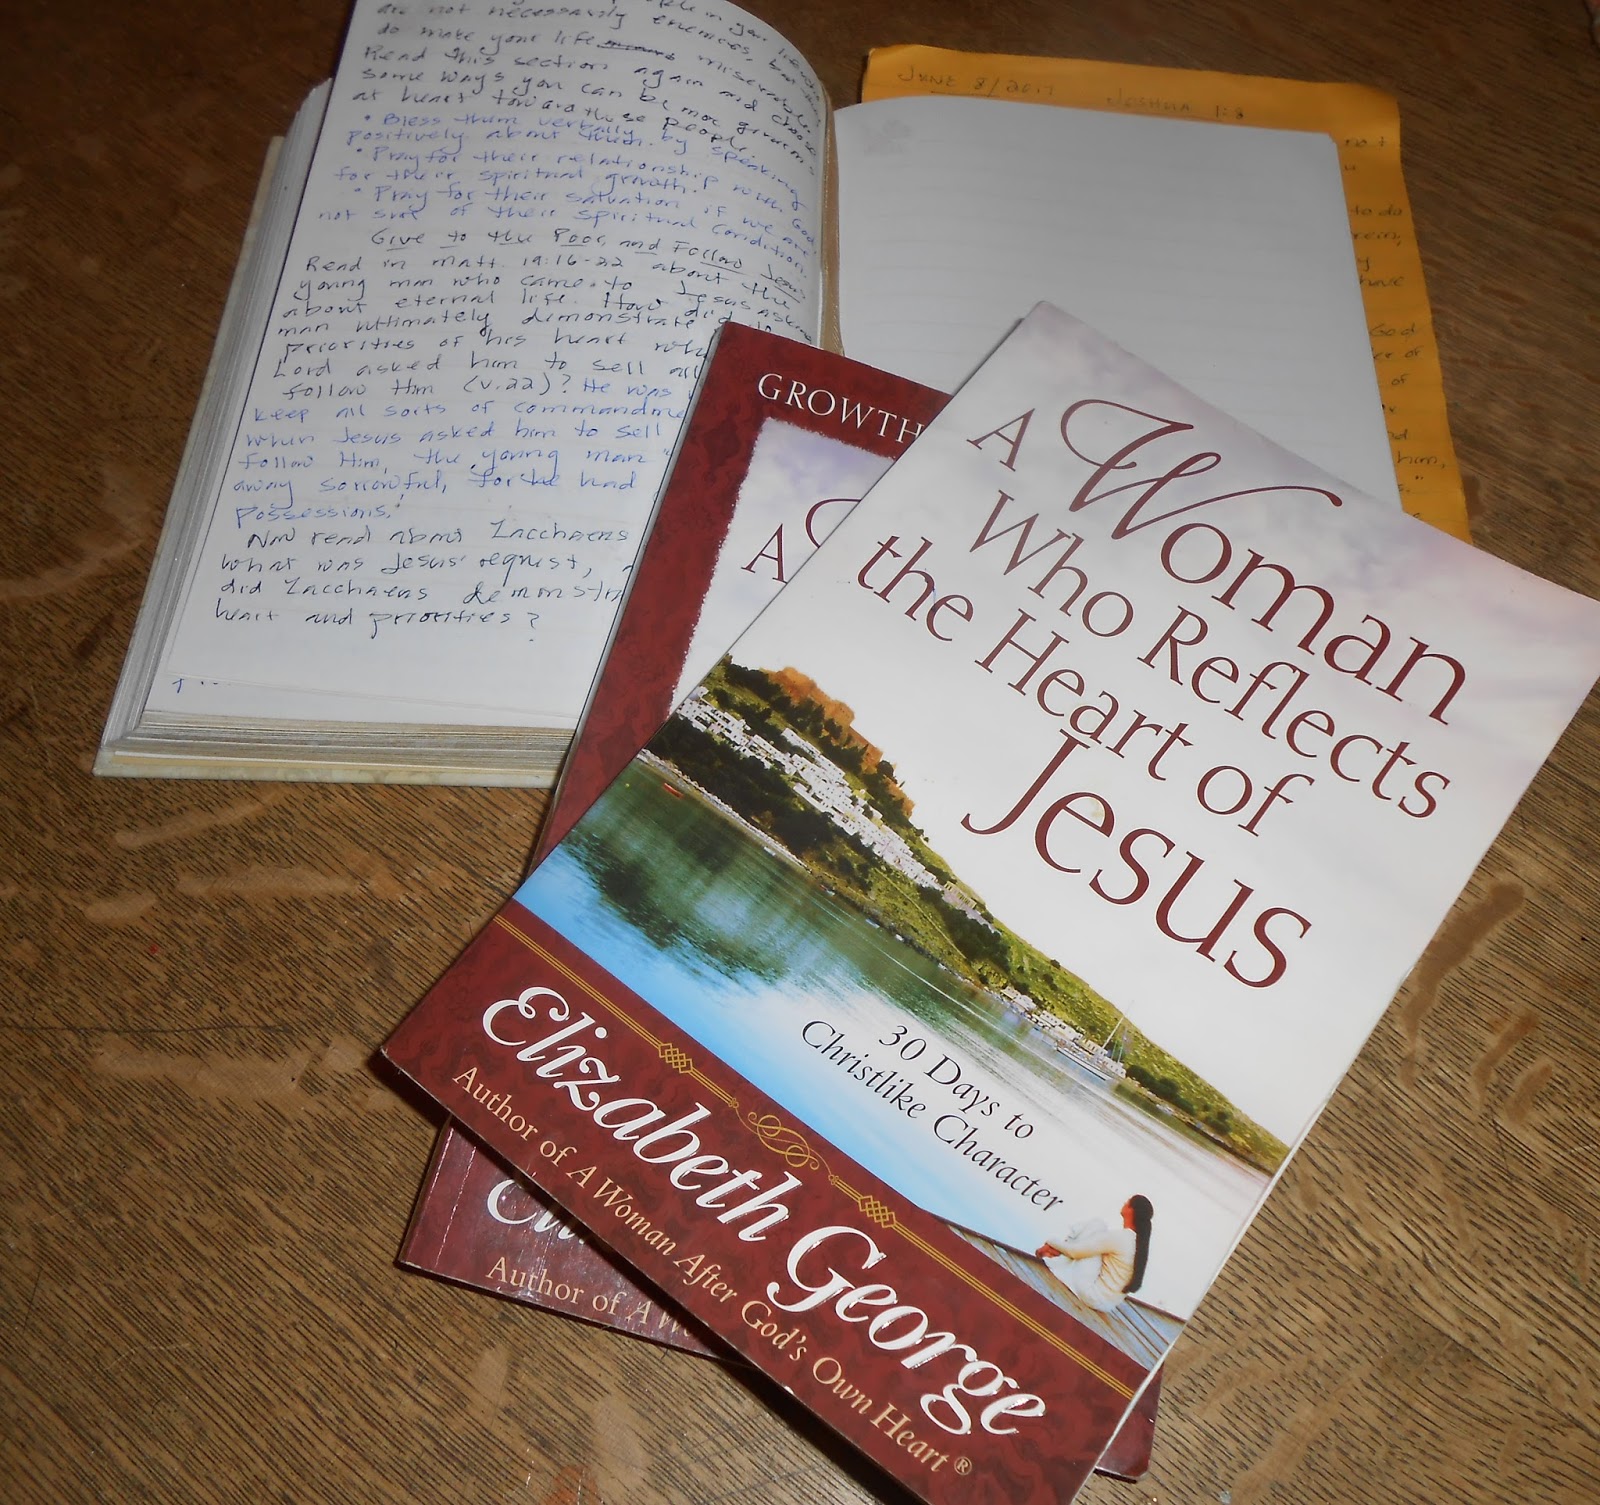 are not necessarily enemies, but
do make your life miserable.
Read this section again and choose
some ways you can be more generous
at heart toward those people.
• Bless them verbally by speaking
positively about them.
• Pray for their relationship with God
for their spiritual growth.
• Pray for their satuation if we are
not sure of their spiritual condition.
Give to the Poor, and Follow Jesus
Read in Matt. 19:16-22 about the
young man who came to Jesus asking
about eternal life. How did
man ultimately demonstrate
priorities of his heart
Lord asked him to sell all
follow Him (v.22)? He was
keep all sorts of
when Jesus asked him to sell
follow Him, the young man "
away sorrowful, for he had
possessions."
Now read about Zacchaeus
what was Jesus' request,
did Zacchaeus
heart and priorities?
JUNE 8/2017 JOSHUA 1:8
not
to do
have
God
of
of
and
him,
GROWTH
A
Author of A
A Woman
Who Reflects
the Heart of
Jesus
30 Days to
Christlike Character
Elizabeth George
Author of A Woman After God's Own Heart ®